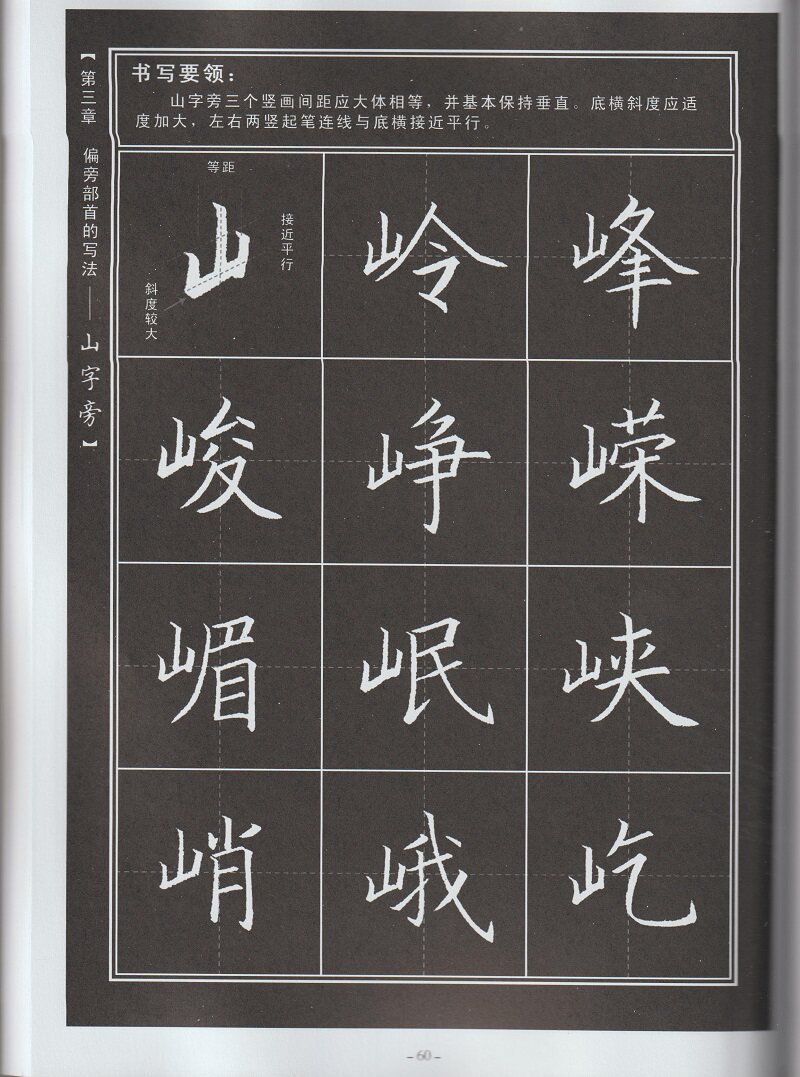 【第三章 偏旁部首的写法——山字旁】
书写要领：
山字旁三个竖画间距应大体相等，并基本保持垂直。底横斜度应适
度加大，左右两竖起笔连线与底横接近平行。
等距
山
接近平行
斜度较大
岭
峰
峻
峥
嵘
嵋
岷
峡
峭
峨
屹
-60-